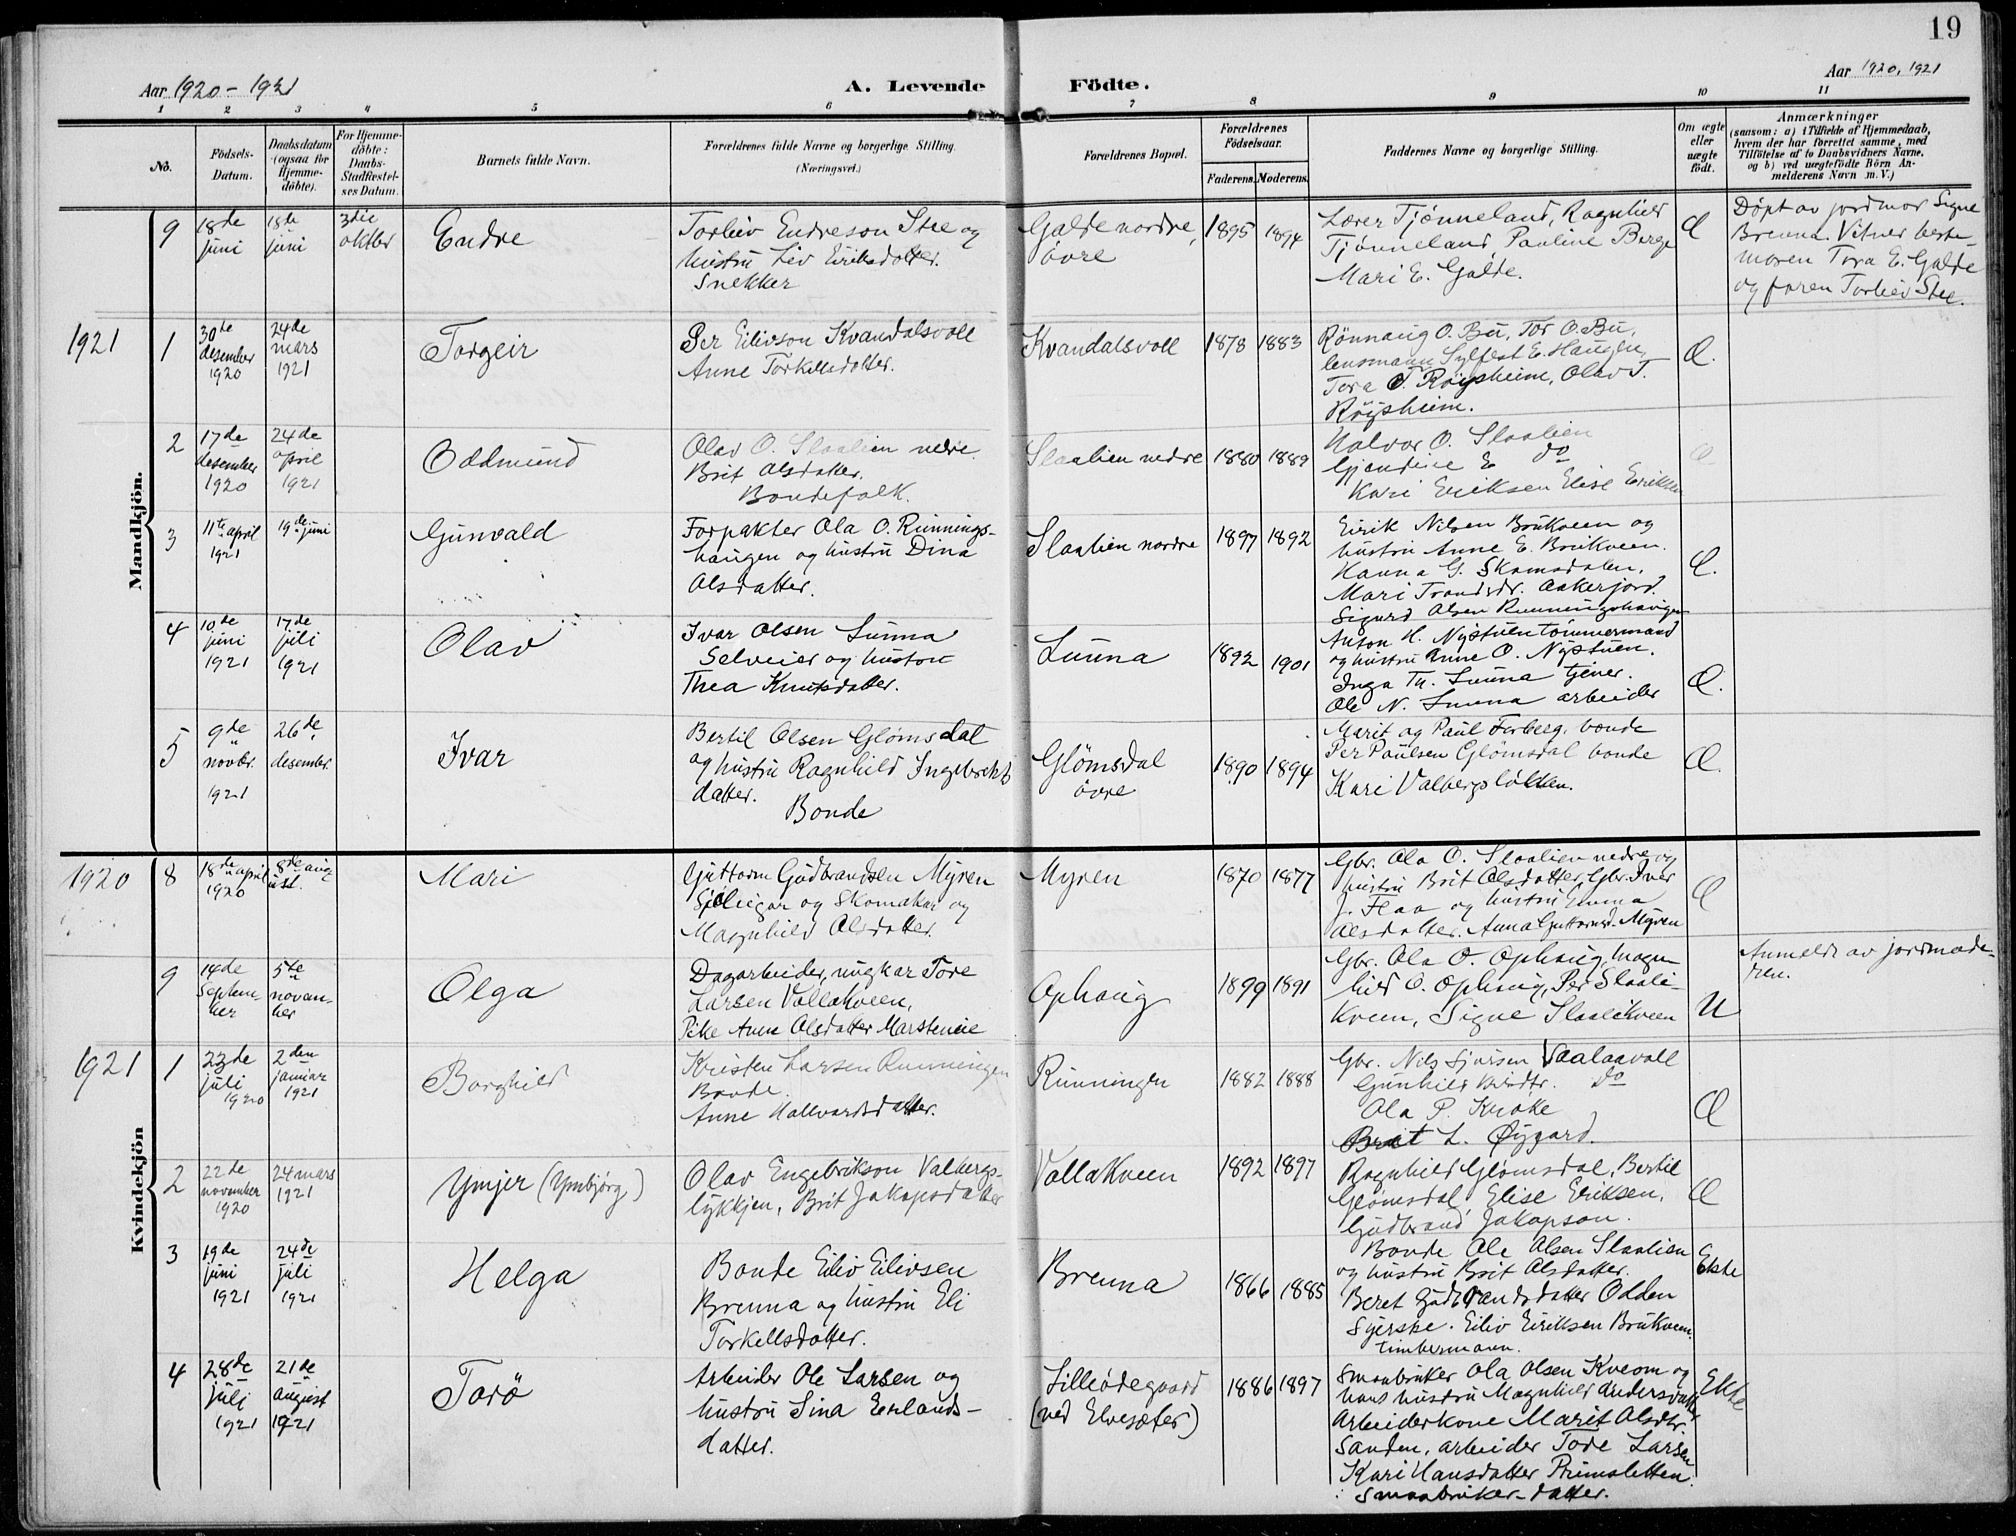 19
Aar 1920 - 1921
A. Levende Födte.
Aar 1920, 1921
1 2 3 4 5 6 7 8 9 10 11
No.
Födsels-Datum.
Daabsdatum (ogsaa for Hjemme-döbte).
For Hjemme-döbte: Daabs-Stadfæstel-ses Datum.
Barnets fulde Navn.
Forældrenes fulde Navne og borgerlige Stilling.
(Næringsvei.)
Forældrenes Bopæl.
Forældrenes Födselsaar.
Faderens. Moderens.
Faddernes Navne og borgerlige Stilling.
Om ægte eller uægte födt.
Anmærkninger
(saasom: a) i Tilfælde af Hjemmedaab,
hvem der har forrettet samme, med
Tilföielse af to Daabsvidners Navne,
og b) ved uægtefödte Börn An-
melderens Navn m. V.)
Mandkjön.
9 18de juni 18de juni 3die oktbr Endre
Torleiv Endreson Stee og
hustru Liv Eiriksdatter.
Snekker
Galde nordre, övre
1895 1894
Lærer Tjønneland, Ragnhild
Tjønneland Pauline Berge
Mari E. Galde.
Æ
Döpt av jordmor Signe
Brenna. Vitner beste-
moren Tora E. Galde
og faren Torleiv Stee.
1921
1 30te desember 1920 24de mars 1921 Torgeir
Per Eilivson Kvandalsvoll
Anne Torkellsdatter.
Kvandalsvoll
1878 1883
Rönnaug O. Bu, Tor O. Bu,
lensmann Sylfest E. Haugen,
Tora T. Röysheim, Olav T.
Röysheim.
Æ.
2 17de desember 1920 24de april 1921 Oddmund
Olav O. Slaalien nedre.
Brit Olsdatter.
Bondefolk.
Slaalien nedre
1880 1889
Halvor O. Slaalien
Gjendine E do
Kari Eriksen Elise Eriksen
Æ
3 11te april 1921 19de juni Gunvald
Forpakter Ola O. Runnings-
haugen og hustru Dina
Olsdatter.
Slaalien nordre
1897 1892
Eirik Nilsen Brukveen og
hustru Anne E. Brukveen.
Hanna G. Skamsdalen,
Mari Trondsdr. Aakerjord.
Sigurd Olsen Runningshaugen
Æ.
4 10de juni 1921 17de juli 1921 Olav
Ivar Olsen Sunna
Selveier og hustru
Thea Knutsdatter.
Sunna
1892 1901
Anton H. Nystuen tömmermand
og hustru Anne O. Nystuen.
Inga Th. Sunna tjener.
Ole N. Sunna arbeider
Æ.
5 9de novbr. 1921 26de desember. Ivar
Bertil Olsen Glømsdal
og hustru Ragnhild Ingebrikt
datter.
Bonde
Glömsdal övre
1890 1894
Marit og Paul Forberg. bonde
Per Paulsen Glømsdal bonde
Kari Valbergsløkken.
Æ.
Kvindekjön
1920
8 18de april 1920 8de august. Mari
Guttorm Gudbrandsen Myren
Sjöleigar og Skomakar og
Magnhild Olsdatter.
Myren
1870 1877
Gbr. Ola O. Slaalien nedre og
hustru Brit Olsdatter, Gbr. Iver
J. Flaa og hustru Emma
Olsdatter. Anna Guttormsd. Myren
Æ
9 14de Septem-ber 5te novem-ber Olga
Dagarbeider, ungkar Tore
Larsen Vollakveen,
Pike Anne Olsdatter Marsteneie
Ophaug
1899 1891
Gbr. Ola O. Ophaug, Magn
hild O. Ophaug, Per Slaali-
kveen, Signe Slaalikveen
U
Anmeldt av jordmode-
ren.
1921
1 23de juli 1920 2den januar 1921 Borghild
Kristen Larsen Runningen
Bonde.
Anne Hallvardsdatter.
Runningen
1882 1888
Gbr. Nils Sjursen Vaalaavoll
Gunhild do
Ola P. Kroke
Brit L. Øygard.
Æ
2 22de november 1920 24 mars 1921 Ymjer (Ymbjørg)
Olav Engebrikson Valbergs-
lykkjen, Brit Jakopsdatter
Vollakveen
1892 1897
Ragnhild Glömsdal, Bertil
Glömsdal, Elise Eriksen,
Gudbrand Jakopson.
Æ
3 19de juni 1921 24de juli 1921 Helga
Bonde Eiliv Eilivsen
Brenna og hustru Eli
Torkellsdatter.
Brenna
1866 1885
Bonde Ole Olsen Slaalien
og hustru Brit Olsdatter.
Beret Gudbrandsdatter Odden
Syerske. Eiliv Eiriksen Brukveen.
timbermann.
Ekte
4 28de juli 1921 21de august 1921 Torö
Arbeider Ole Larsen og
hustru Lina Erlands-
datter.
Lilleödegaard
(ved Elvesæter)
1886 1897
Smaabruker Ola Olsen Kveom og
hans hustru Magnhild Andersdatter
Arbeiderkone Marit Olsdtr.
Sanden, arbeider Tore Larsen
Kari Hansdatter Primsletten.
Smaabruker-datter.
Ekte